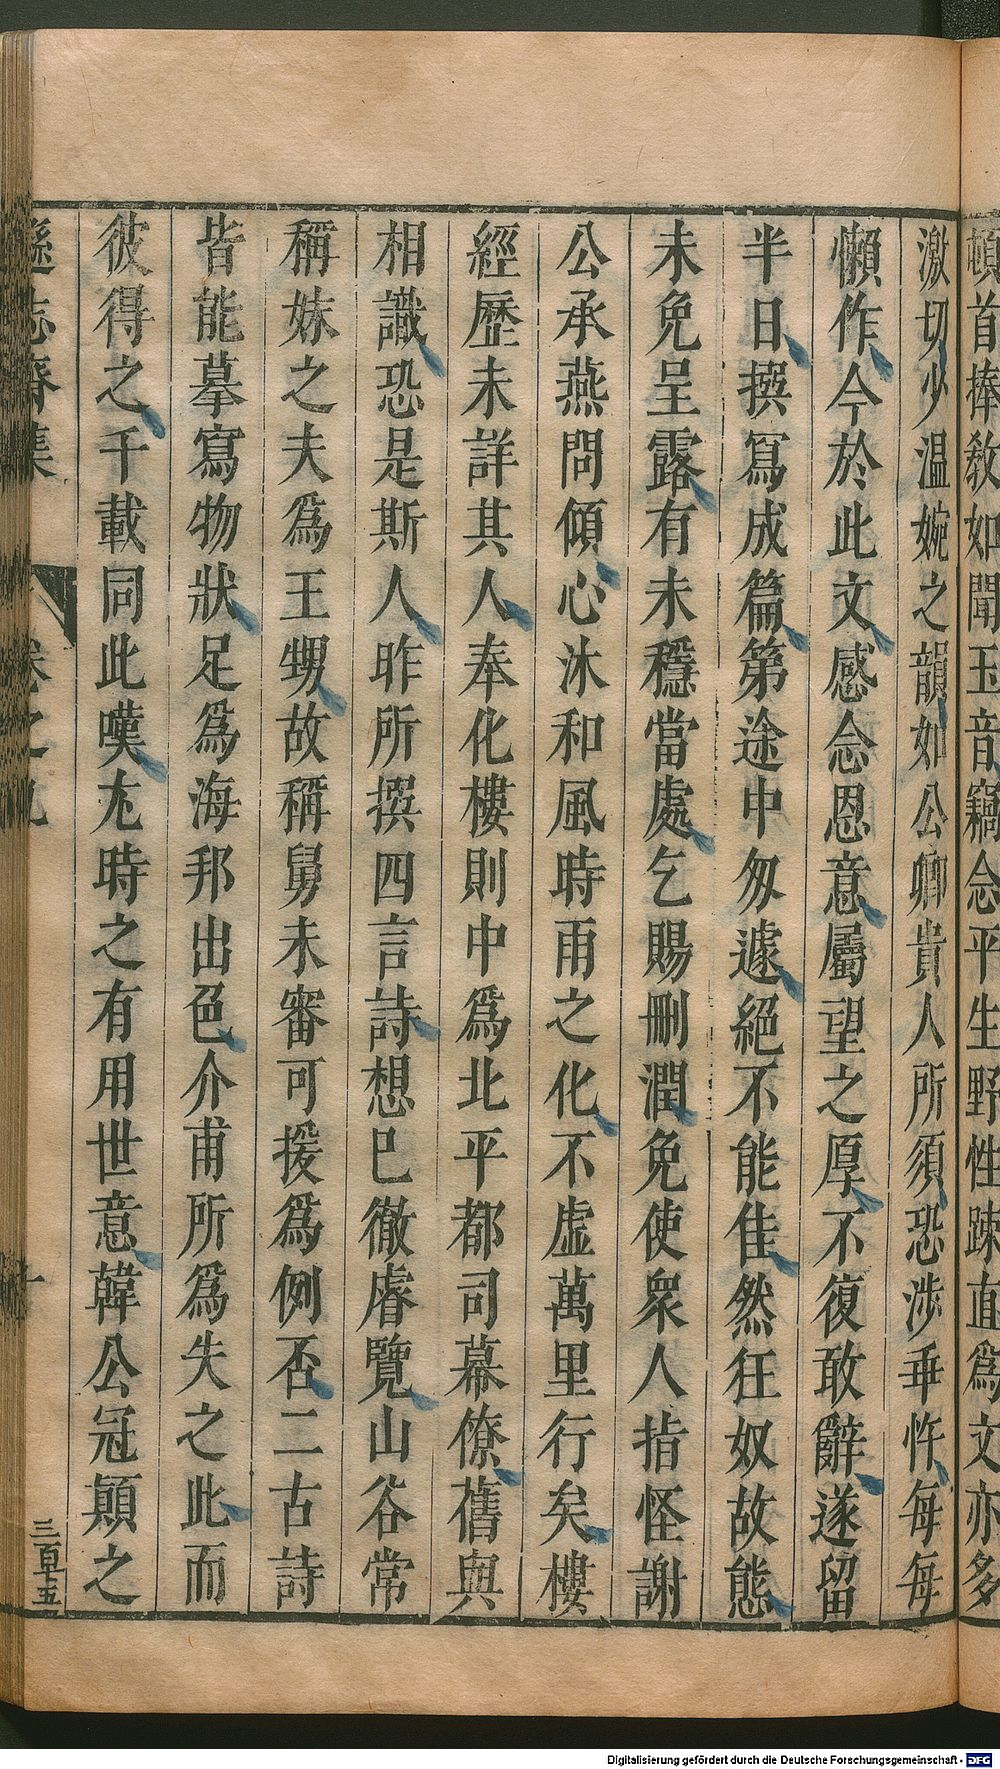 頓首捧教如聞玉音竊念平生野性踈直為文亦多
激切少温婉之韻如公卿貴人所須恐涉垂忤每每
懶作今於此文感念恩意屬望之厚不復敢辭遂留
半日撰寫成篇第途中匆遽絕不能佳然狂奴故態
未免呈露有未穩當處乞賜刪潤免使衆人指怪謝
公承燕問傾心沐和風時雨之化不虛萬里行矣樓
經歷未詳其人奉化樓則中爲北平都司幕僚舊與
相識恐是斯人昨所撰四言詩想已徹睿覽山谷常
稱妹之夫爲王甥故稱舅未審可援爲例否二古詩
皆能摹寫物狀足爲海邦出色介甫所爲失之此而
彼得之千載同此嘆尤時之有用世意韓公冠顛之
遜志齋集 卷之九 十 三百五
Digitalisierung gefördert durch die Deutsche Forschungsgemeinschaft - DFG